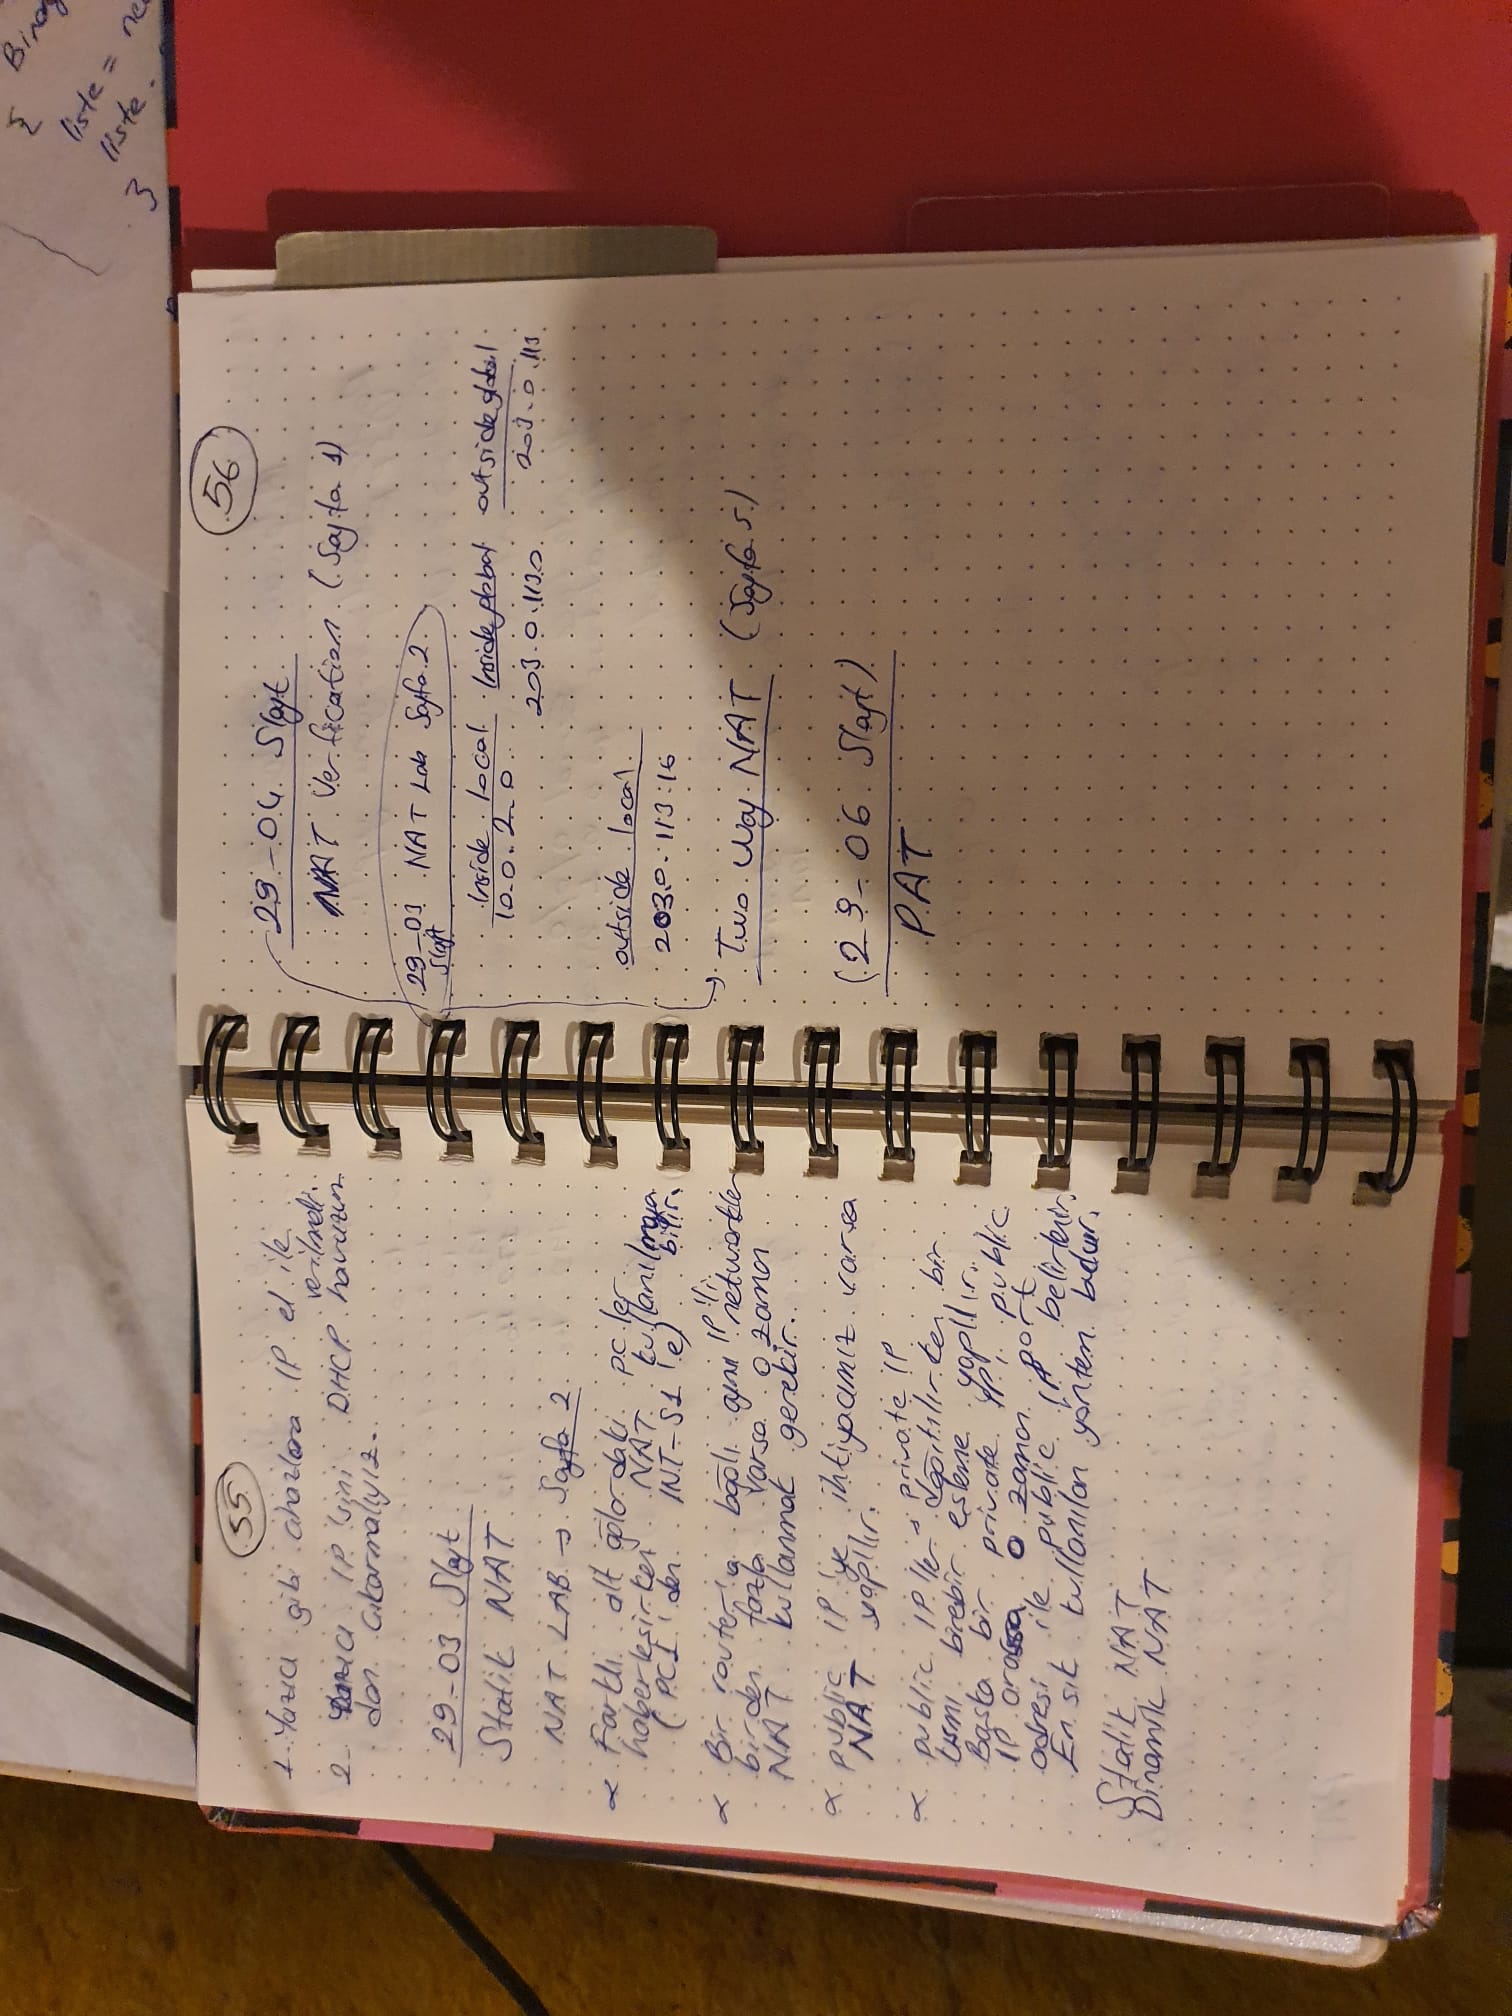 55
1. Yazıcı gibi cihazlara IP el ile
verilmeli.
2. Yazıcı IP'sini DHCP havuzun
dan çıkarmalıyız.
29-03 Slayt
Statik NAT
NAT LAB → Sayfa 2
α Farklı alt ağlardaki pc ler
haberleşirken NAT kullanılmaya
(PC1'den INT-S1'e) bilir.
α Bir router'a bağlı aynı IP'li networkler
birden fazla varsa o zaman
NAT kullanmak gerekir.
α public IP'ye ihtiyacımız varsa
NAT yapılır.
private IP
α public IP ler dağıtılırken bir
kısmı birebir eşleme yapılır.
Başka bir private IP, public
IP ararsa o zaman port
adresi ile public IP belirlenir.
En sık kullanılan yöntem budur.
Statik NAT
Dinamik NAT
56
29-04 Slayt
NAT Verfication (Sayfa 1)
29-03 NAT Lab Sayfa 2
Slayt
Inside local Inside global outside global
10.0.2.0
203.0.113.0 203.0.113
outside local
203.0.113.16
Two Way NAT (Sayfa 5)
(29-06 Slayt)
PAT
liste =
liste.
}